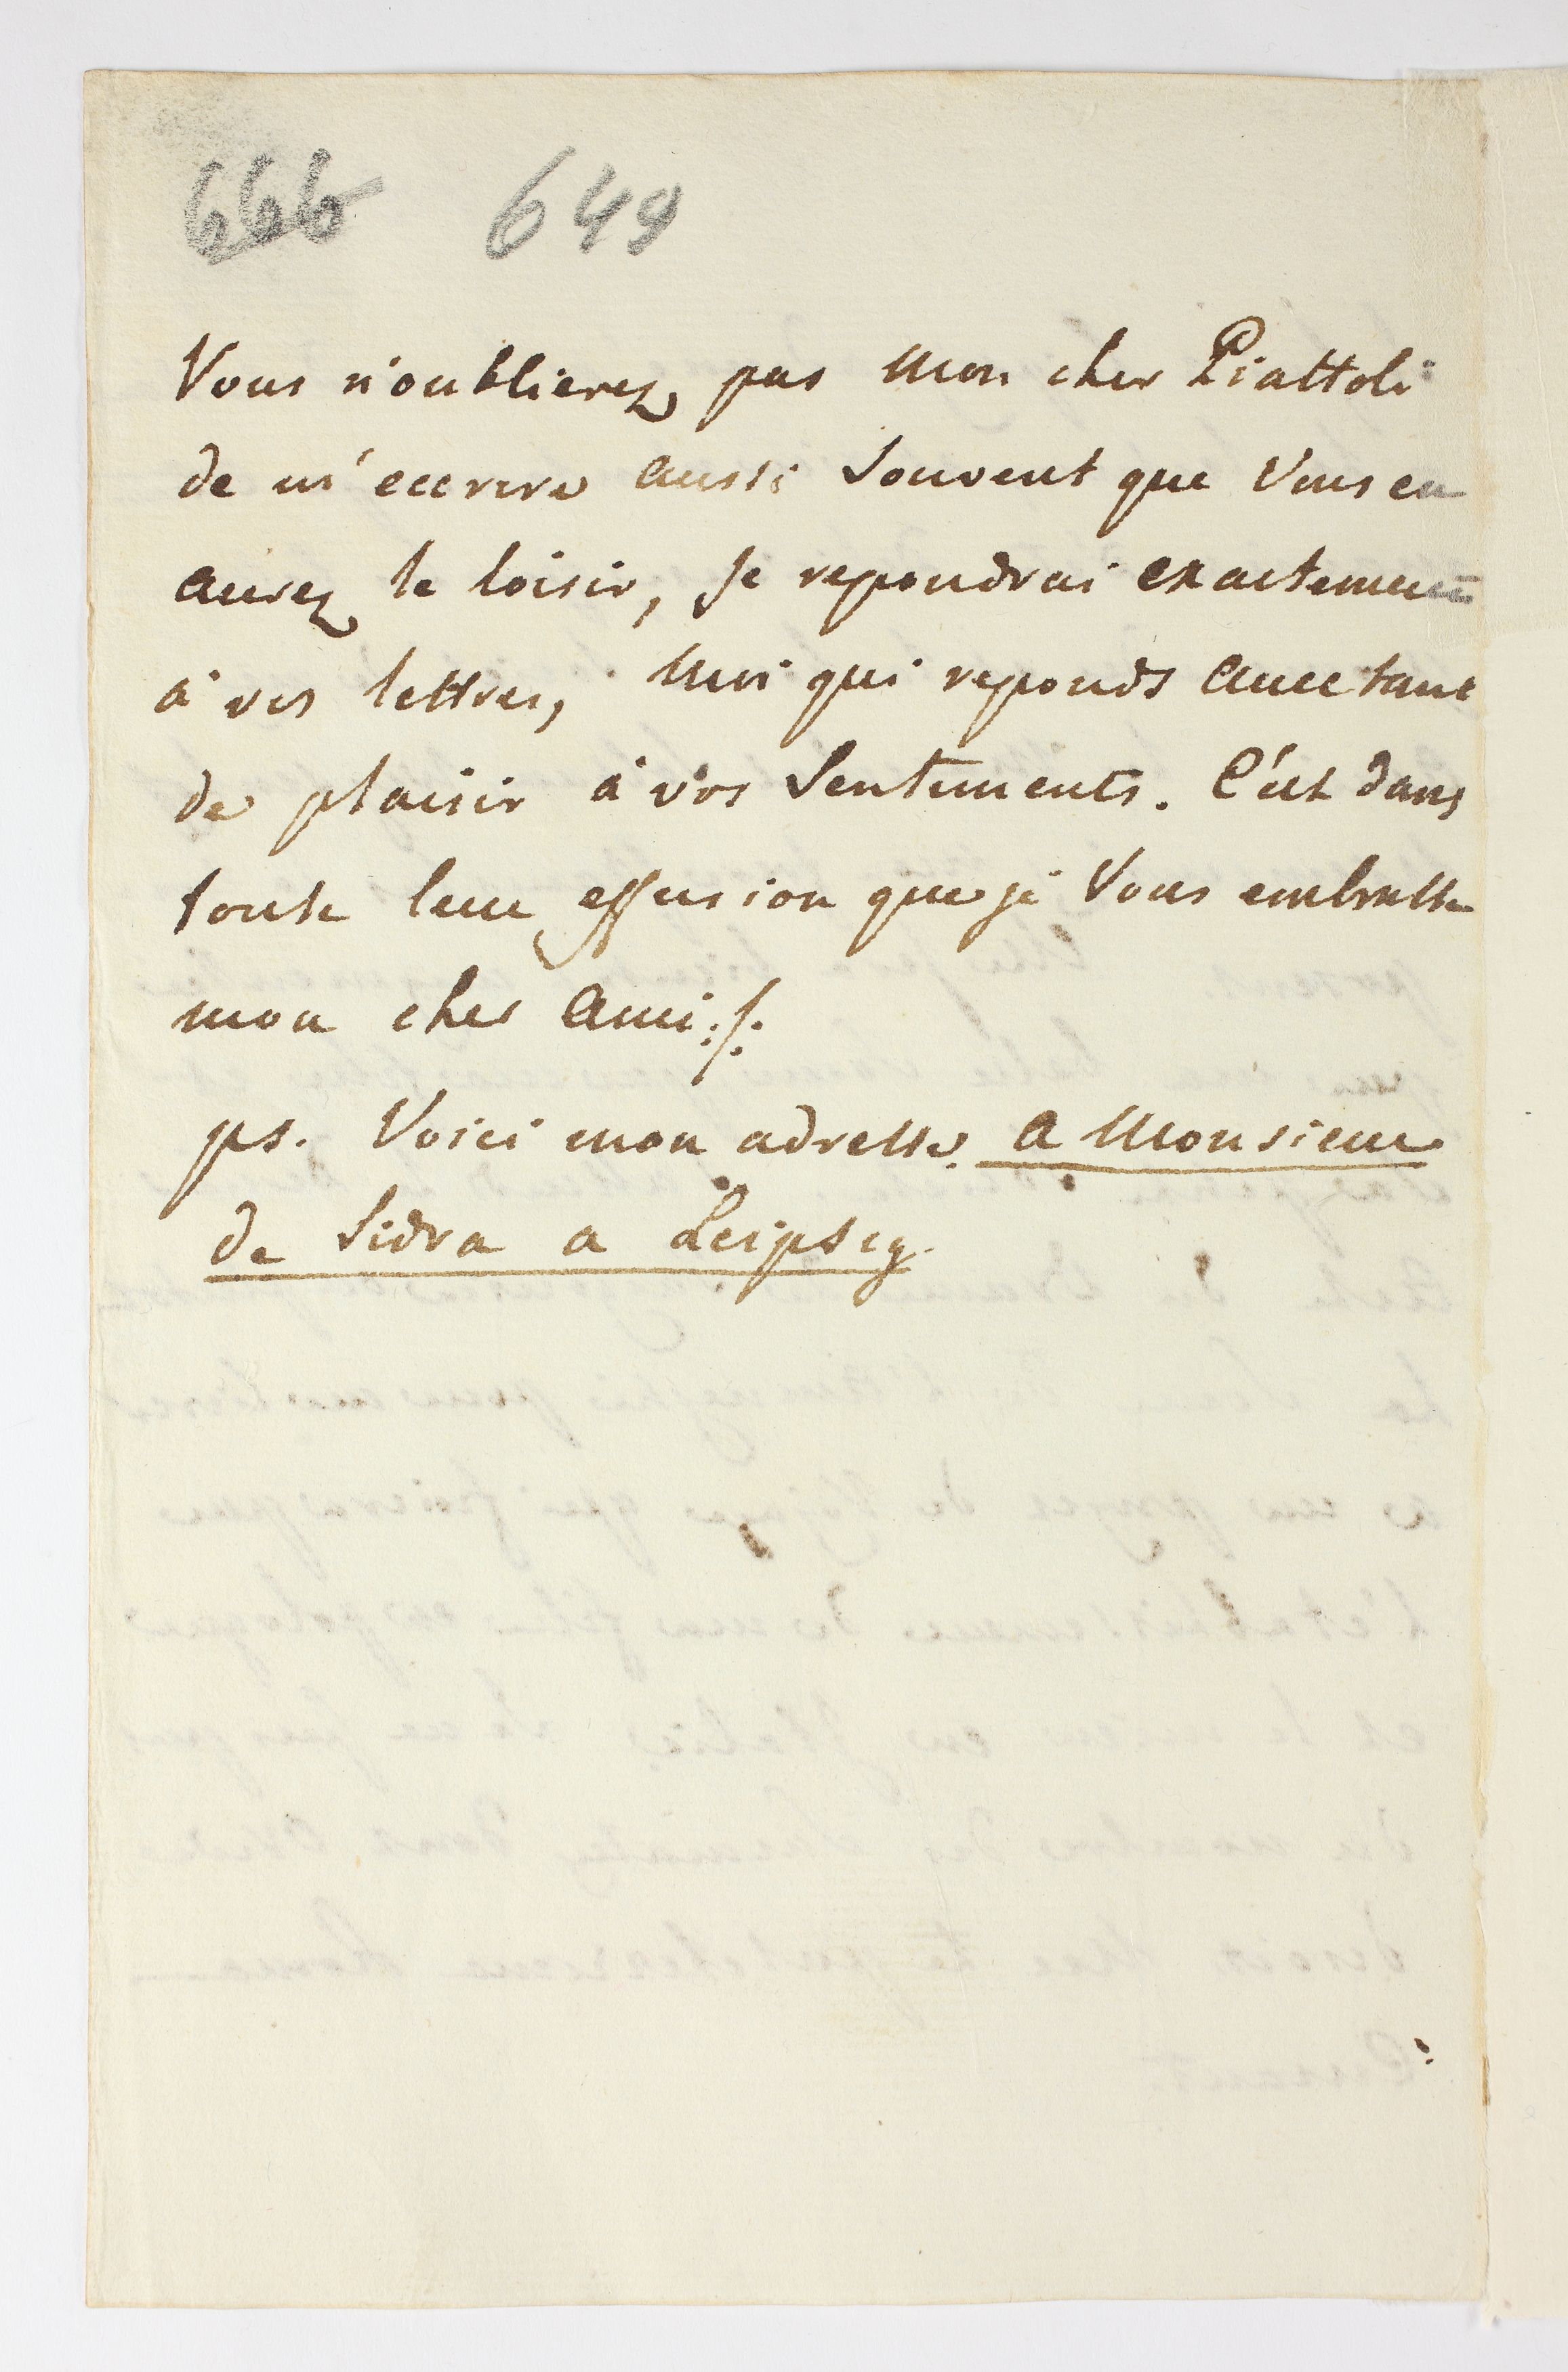 666 649
Vous n'oublierez pas mon cher Piattoli
de m'eccrire aussi souvent que vous en
aurez le loisir, je repondrai exactement
à vos lettres, moi qui reponds avec tant
de plaisir à vos sentiments. C'est dans
toute leur effusion que je vous embrasse
mon cher ami ./.
ps. Voici mon adresse. a Monsieur
de Sidra a Leipsig.